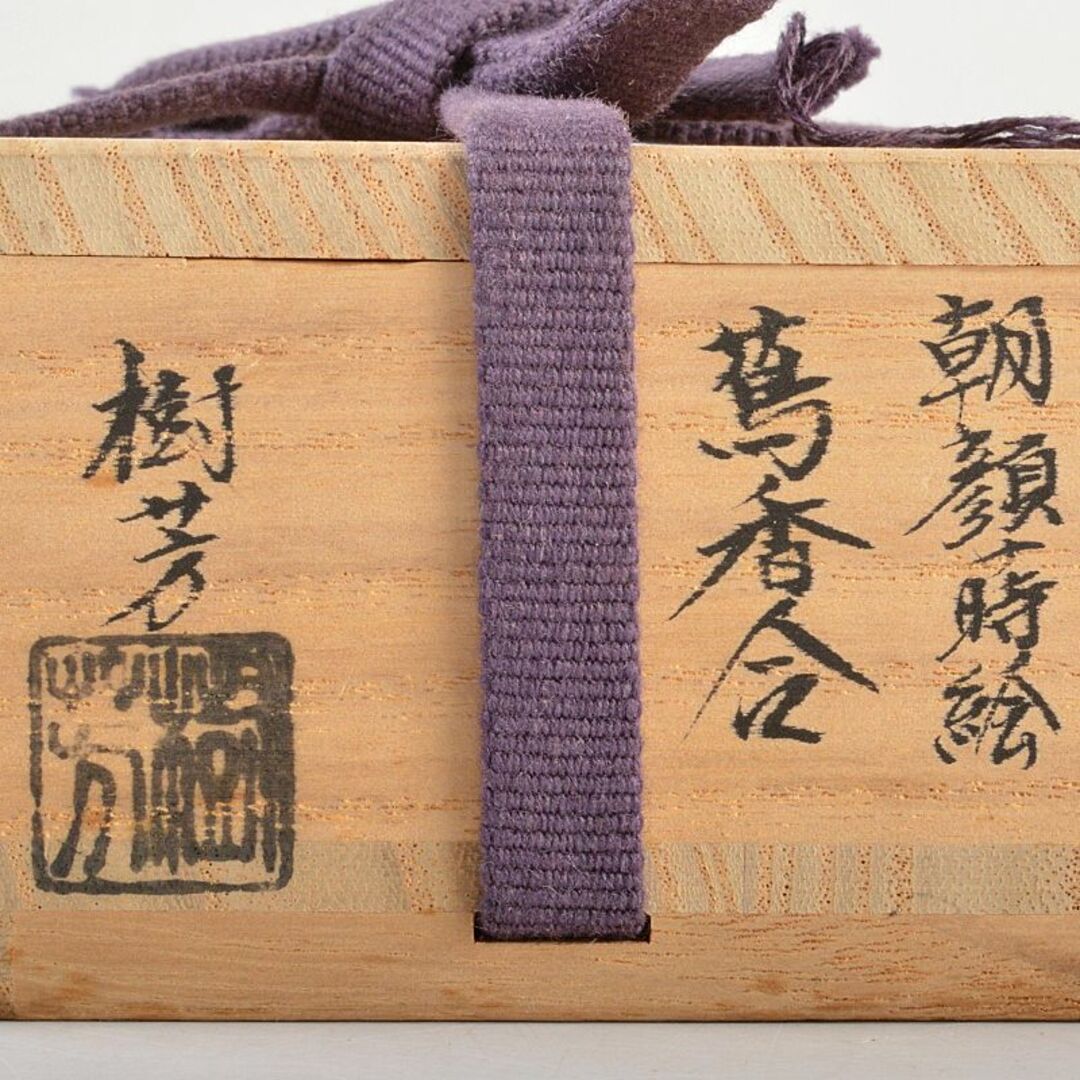 朝顔蒔絵
蔦香合
樹芳